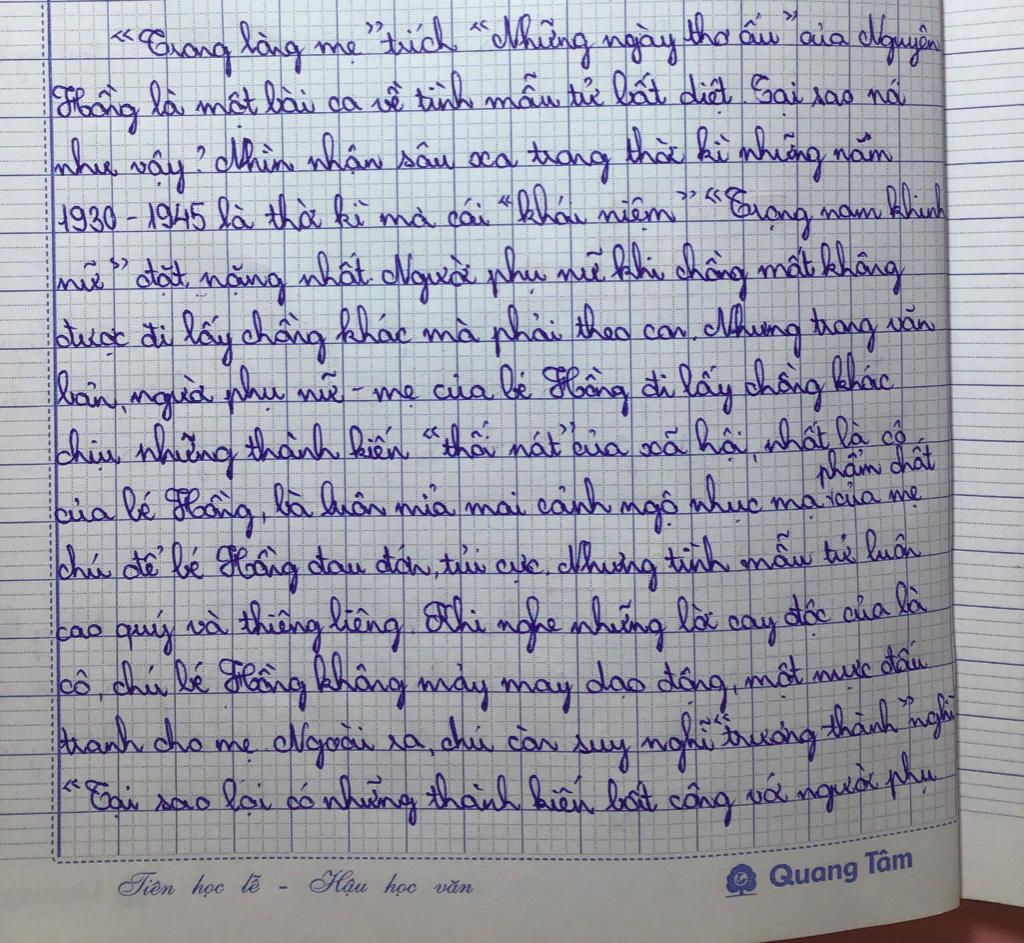 “Trong lòng mẹ” trích “Những ngày thơ ấu” của Nguyên
Hồng là một bài ca về tình mẫu tử bất diệt. Tại sao nó
như vậy? Nhìn nhận sâu xa trong thời kì những năm
1930 - 1945 là thời kì mà cái “khái niệm” “Trọng nam khinh
nữ” đặt nặng nhất. Người phụ nữ khi chồng mất không
được đi lấy chồng khác mà phải theo con. Nhưng trong văn
bản, người phụ nữ - mẹ của bé Hồng đi lấy chồng khác
chịu những thành kiến “thối nát” của xã hội, nhất là cô
phẩm chất
của bé Hồng, bà luôn mỉa mai cảnh ngộ nhục mạ của mẹ
chú để bé Hồng đau đớn, tủi cực. Nhưng tình mẫu tử luôn
cao quý và thiêng liêng. Khi nghe những lời cay độc của bà
cô, chú bé Hồng không mảy may dao động, một mực đấu
tranh cho mẹ. Ngoài ra, chú còn suy nghĩ “trưởng thành” nghĩ
“Tại sao lại có những thành kiến bất công với người phụ
Tiên học lễ - Hậu học văn
Quang Tâm